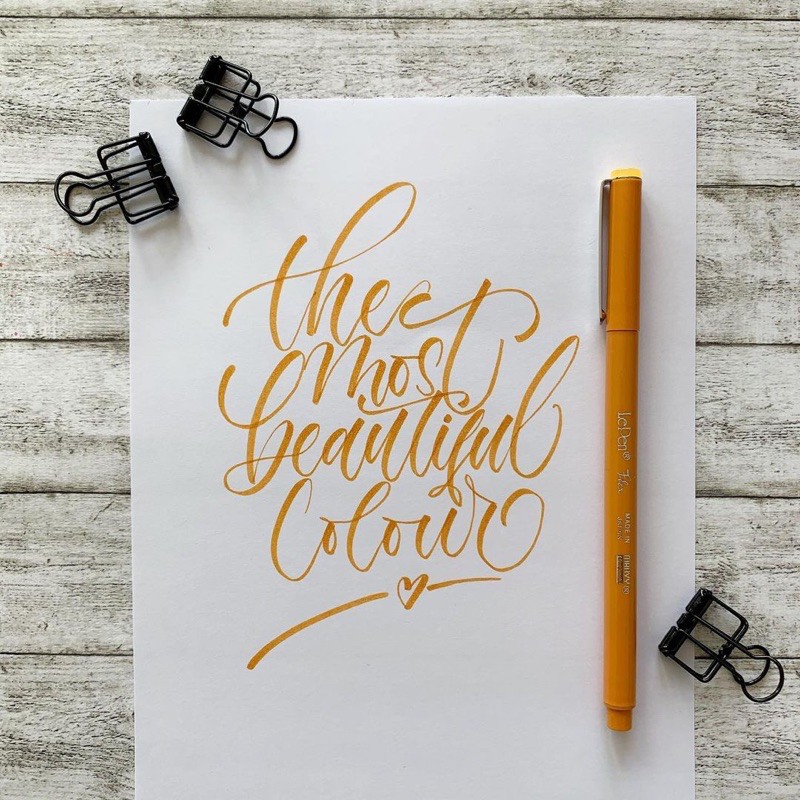 the
most
beautiful
colour
Le Pen® Flex
MADE IN
JAPAN
MARVY